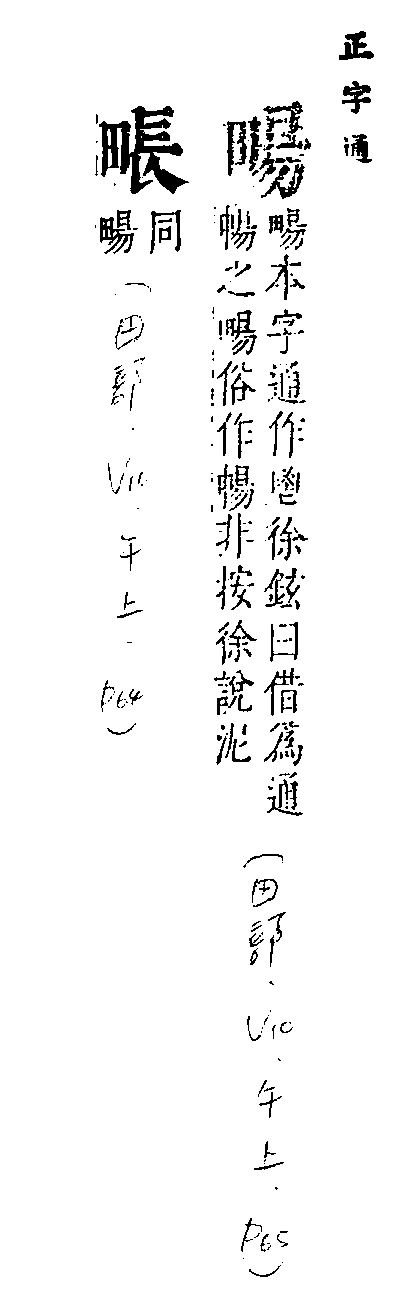 正字通
畼本字通作鬯徐鉉曰借爲通
暢之畼俗作暢非按徐說泥
(田部·V10·午上·P65)
同
畼
(田部·V10·午上·P64)